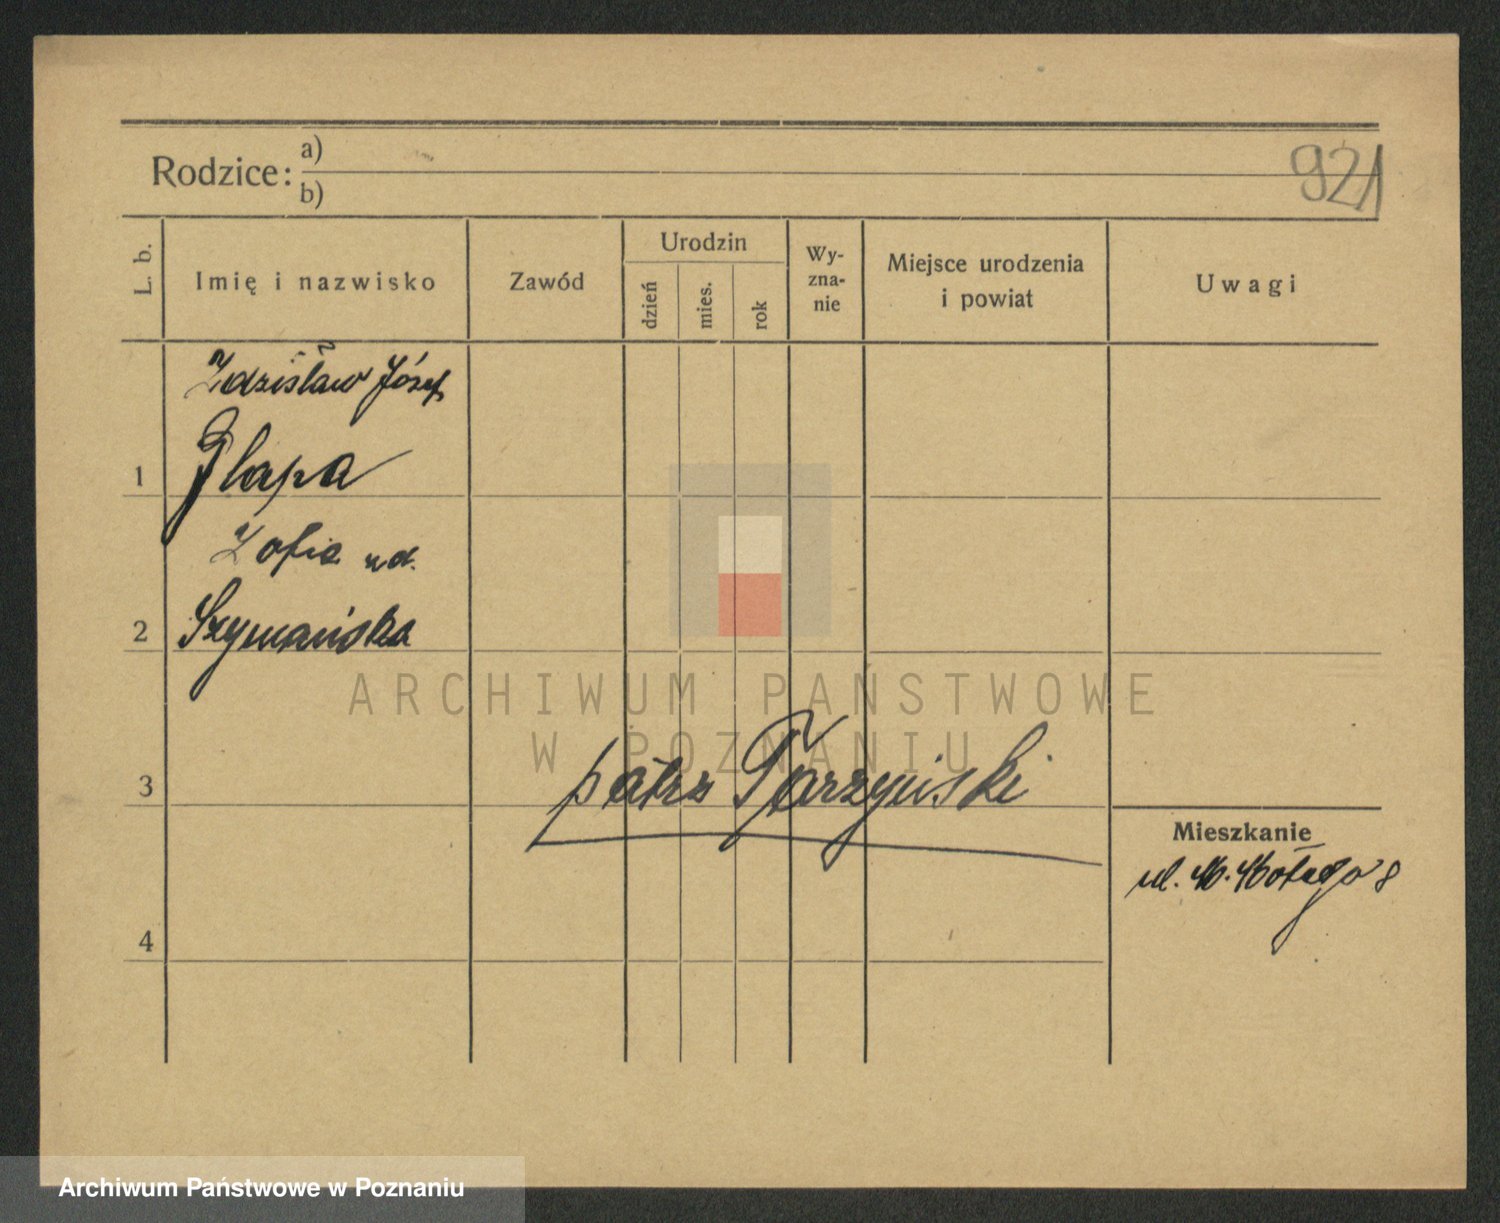 921
Rodzice: a)
b)
L. b.
Imię i nazwisko
Zawód
Urodzin
dzień
mies.
rok
Wy-
zna-
nie
Miejsce urodzenia
i powiat
Uwagi
Zdzisław Józef
1 Glapa
Zofia zd.
2 Szymańska
ARCHIWUM PAŃSTWOWE
W POZNANIU
3 patrz Garzyński
Mieszkanie
ul. 8
4
Archiwum Państwowe w Poznaniu